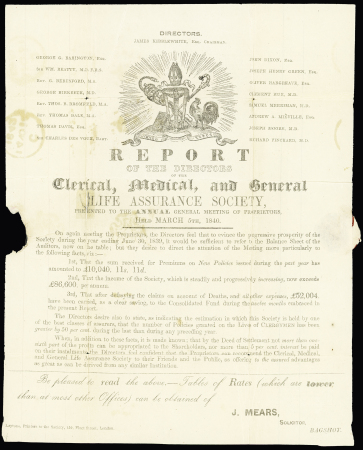 DIRECTORS.
GEORGE G. BABINGTON, Esq.
JOHN DIXON, Esq.
JOSEPH HENRY GREEN, Esq.
GEORGE BIRKBECK, M.D.
THOMAS DAVIS, Esq.
REPORT
OF THE DIRECTORS
OF THE
Clerical, Medical, and General
LIFE ASSURANCE SOCIETY,
PRESENTED TO THE ANNUAL GENERAL MEETING OF PROPRIETORS,
HELD MARCH 5TH, 1840.
On again meeting the Proprietors, the Directors feel that to evince the progressive prosperity of the
Society during the year ending June 30, 1839, it would be sufficient to refer to the Balance Sheet of the
Auditors, now on its table; but they desire to direct the attention of the Meeting more particularly to
the following facts, viz:—
1st, The the sum received for Premiums on New Policies issued during the past year has
amounted to £10,040. 11s. 11d.
2nd, That the Income of the Society, which is steadily and progressively increasing, now exceeds
£86,600 per annum.
3rd, That after defraying the claims on account of Deaths, and all other expenses, £52,004
have been carried, as a clear saving, to the Consolidated Fund during the twelve months embraced in
the present Report.
The Directors desire also to state, as indicating the estimation in which this Society is held by one
of the best classes of assurers, that the number of Policies granted on the Lives of CLERGYMEN has been
greater by 50 per cent. during the last than during any preceding year.
When, in addition to these facts, it is made known, that by the Deed of Settlement not more than
part of the profit can be appropriated to the Shareholders, nor more than 5 per cent interest be paid
to their instalments, the Directors feel confident that the Proprietors can recommend the Clerical, Medical,
and General Life Assurance Society to their Friends and the Public, as offering to the assured advantages
as great as can be derived from any similar Institution.
Be pleased to read the above.—Tables of Rates (which are lower
than at most other Offices) can be obtained of
J. MEARS,
SOLICITOR.
BAGSHOT.